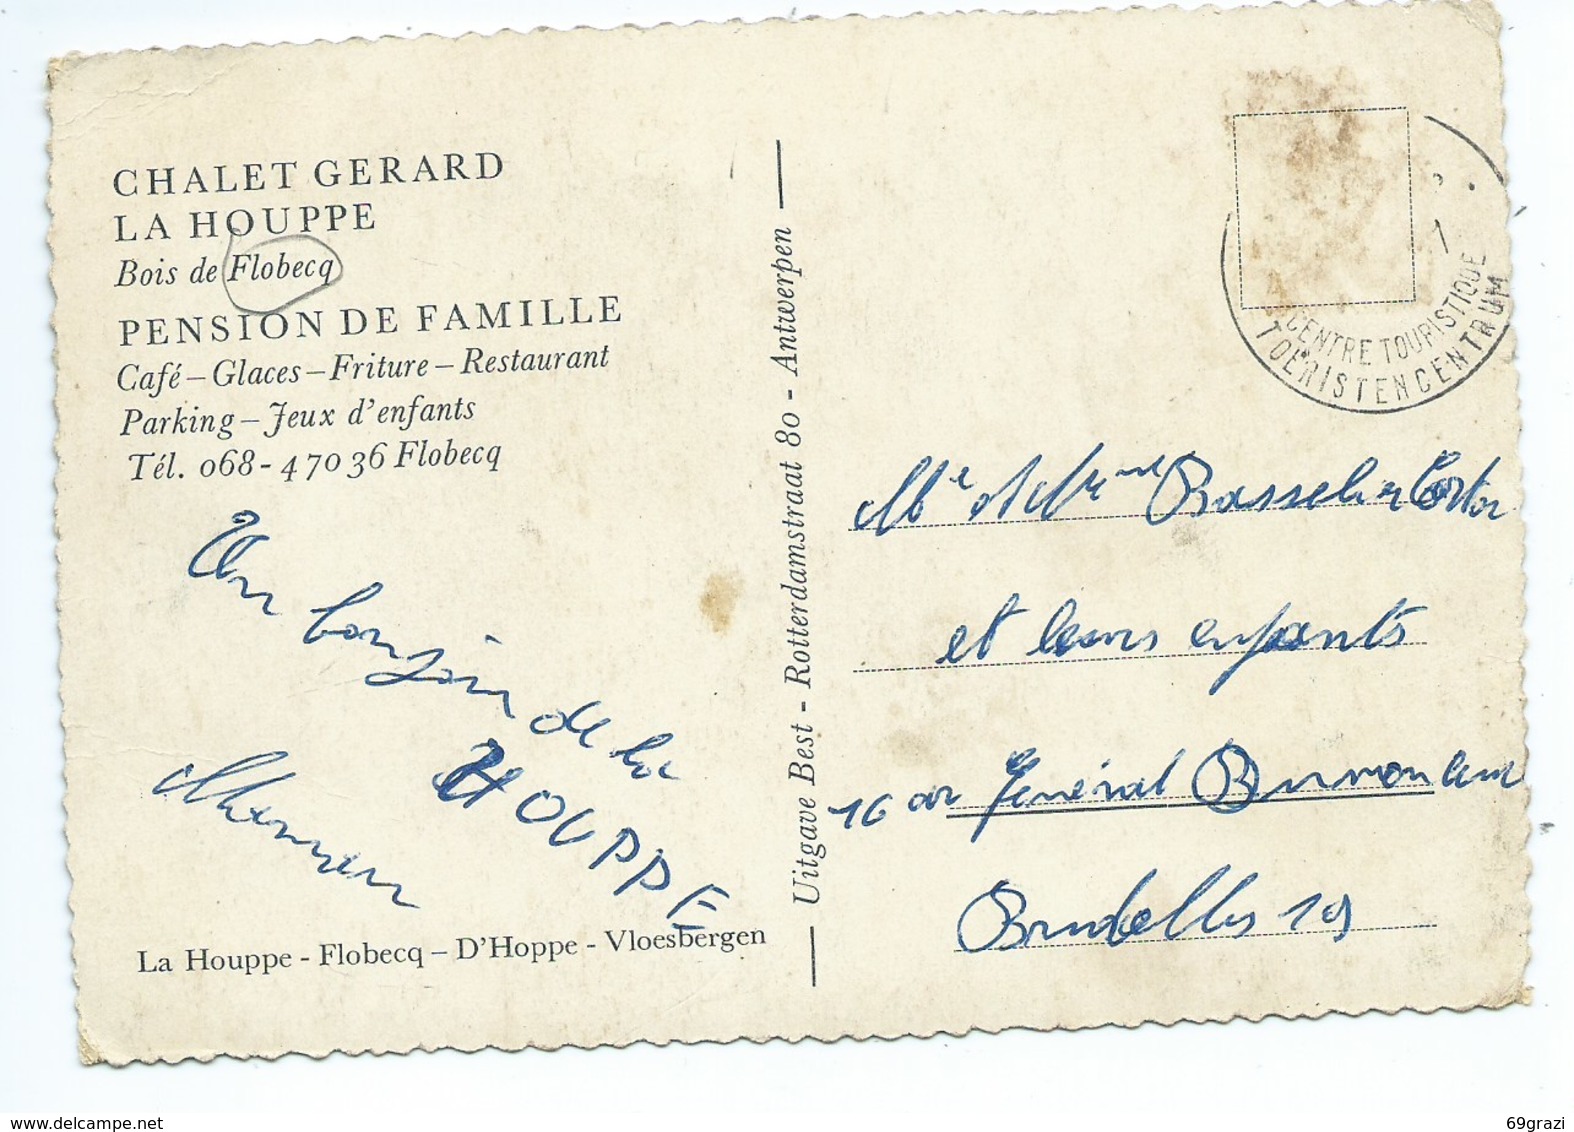 CHALET GERARD
LA HOUPPE
Bois de Flobecq
PENSION DE FAMILLE
Café – Glaces – Friture – Restaurant
Parking – Jeux d'enfants
Tél. 068 - 4 70 36 Flobecq
Un bonjour de la
HOUPPE
La Houppe - Flobecq – D'Hoppe - Vloesbergen
Uitgave Best - Rotterdamstraat 80 - Antwerpen
CENTRE TOURISTIQUE
TOERISTENCENTRUM
et leurs enfants
16 av Général
Bruxelles 19
69grazi